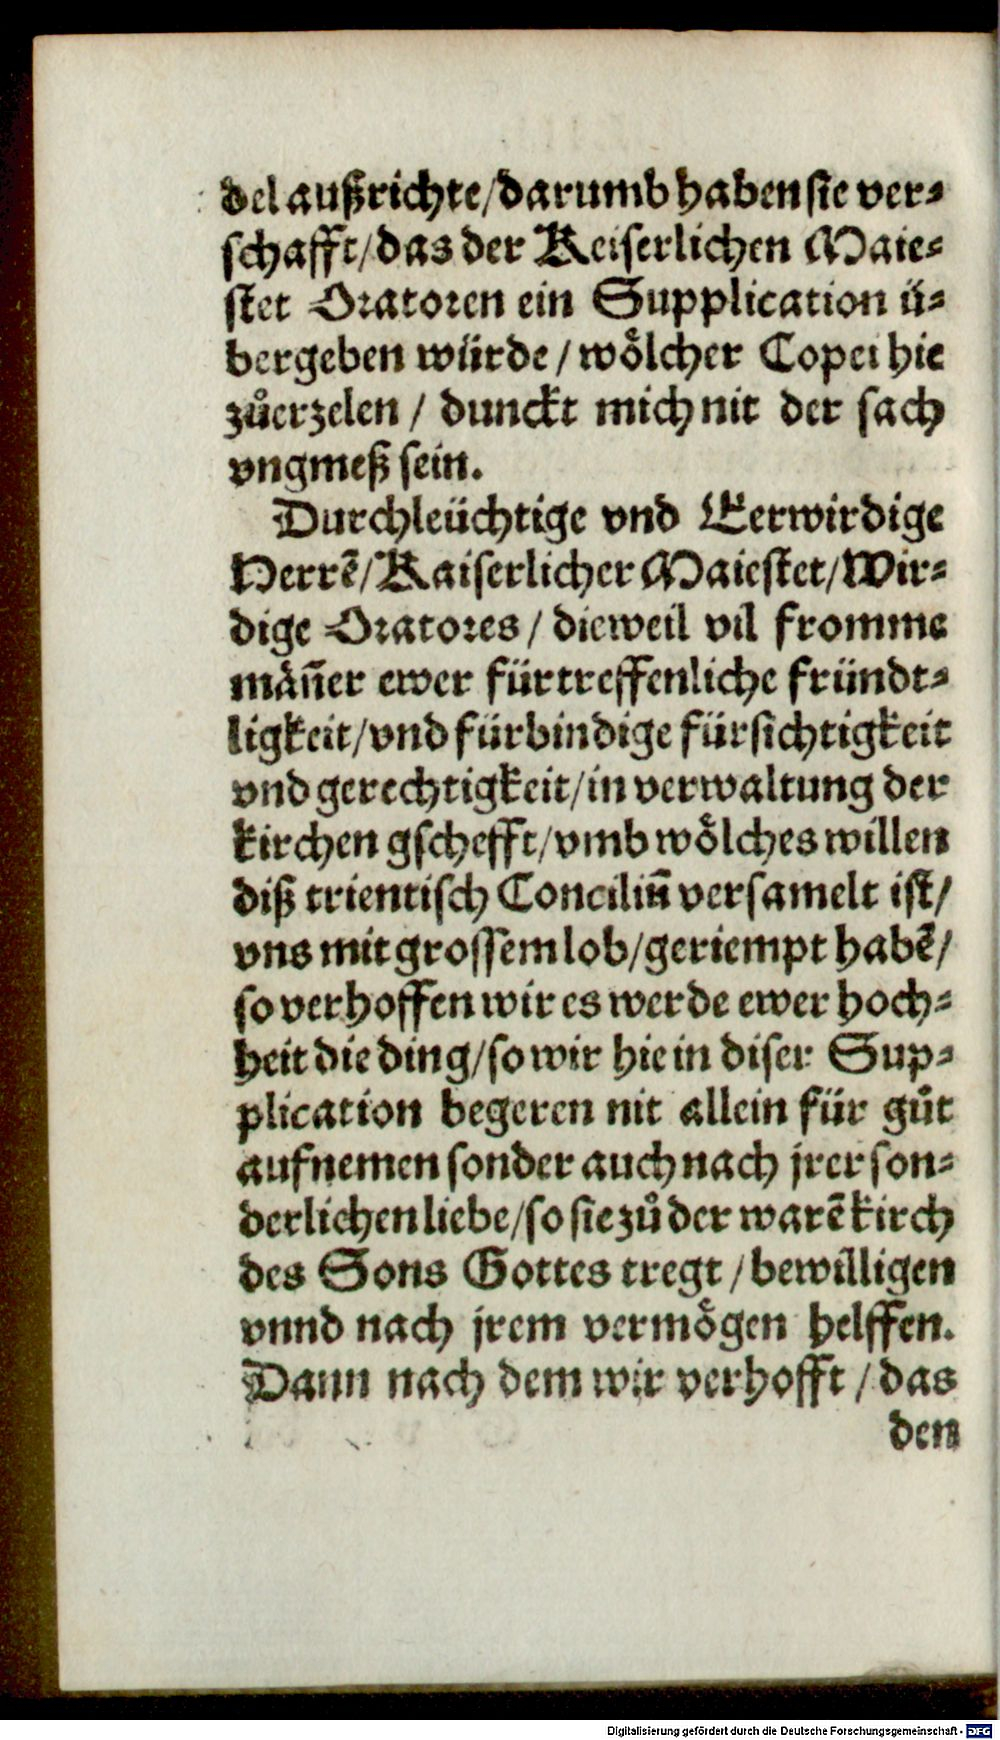 del außrichte/darumb haben sie ver-
schafft/das der Keiserlichen Maie-
stet Oratoren ein Supplication ü-
bergeben würde/wölcher Copei hie
zůerzelen/dunckt mich nit der sach
vngmeß sein.
Durchleüchtige vnd Eerwirdige
Herrẽ/Kaiserlicher Maiestet/Wir-
dige Oratores/dieweil vil fromme
mäñer ewer fürtreffenliche fründt-
ligkeit/vnd fürbindige fürsichtigkeit
vnd gerechtigkeit/in verwaltung der
kirchen gschefft/vmb wölches willen
diß trientisch Conciliũ versamelt ist/
vns mit grossem lob/geriempt habẽ/
so verhoffen wir es werde ewer hoch-
heit die ding/so wir hie in diser Sup-
plication begeren nit allein für gůt
aufnemen sonder auch nach jrer son-
derlichen liebe/so sie zů der warẽ kirch
des Sons Gottes tregt/bewilligen
vnnd nach jrem vermögen helffen.
Dann nach dem wir verhofft/das
den
Digitalisierung gefördert durch die Deutsche Forschungsgemeinschaft - DFG